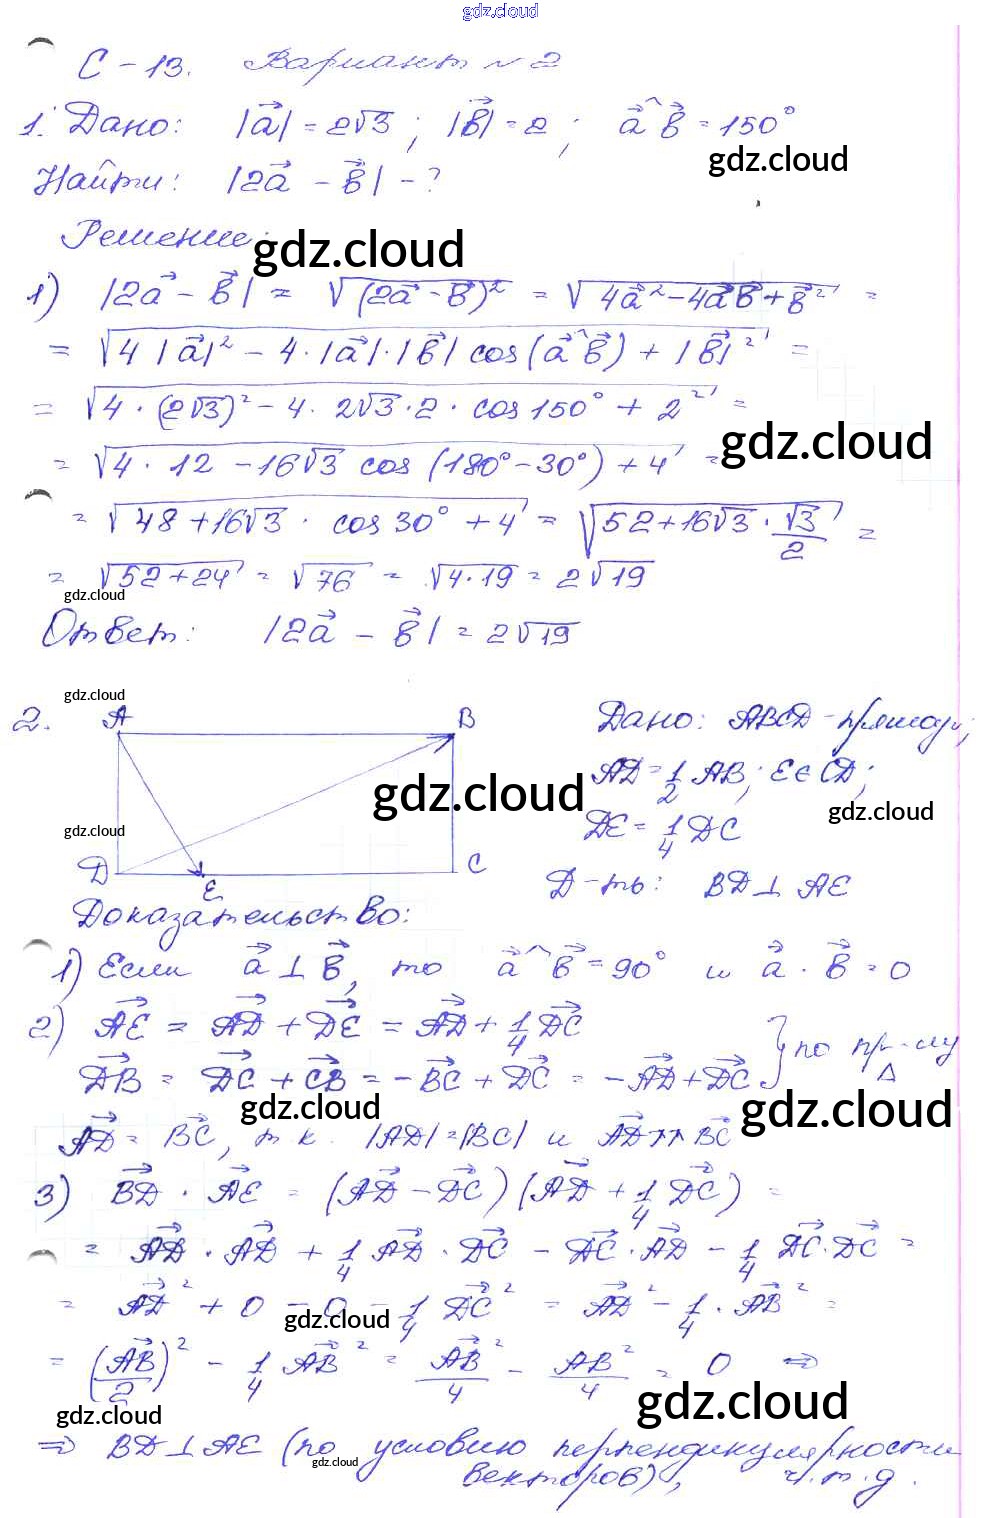 gdz.cloud
С-13. Вариант №2
1. Дано: |a⃗| = 2√3; |b⃗| = 2; a⃗^b⃗ = 150°
gdz.cloud
Найти: |2a⃗ - b⃗| - ?
Решение:
gdz.cloud
1) |2a⃗ - b⃗| = √(2a⃗ - b⃗)² = √4a⃗² - 4a⃗b⃗ + b⃗² =
= √4|a⃗|² - 4·|a⃗|·|b⃗| cos(a⃗^b⃗) + |b⃗|² =
= √4·(2√3)² - 4·2√3·2·cos150° + 2² =
gdz.cloud
= √4·12 - 16√3 cos(180° - 30°) + 4 =
= √48 + 16√3 · cos30° + 4 = √52 + 16√3 · √3/2 =
= √52 + 24 = √76 = √4·19 = 2√19
gdz.cloud
Ответ: |2a⃗ - b⃗| = 2√19
gdz.cloud
2. A B
D E C
gdz.cloud
gdz.cloud
Дано: ABCD - прямоуг.;
AD = 1/2 AB; E ∈ CD;
gdz.cloud
DE = 1/4 DC
Д-ть: BD ⊥ AE
Доказательство:
1) Если a⃗ ⊥ b⃗, то a⃗^b⃗ = 90° и a⃗ · b⃗ = 0
2) AE⃗ = AD⃗ + DE⃗ = AD⃗ + 1/4 DC⃗
DB⃗ = DC⃗ + CB⃗ = -BC⃗ + DC⃗ = -AD⃗ + DC⃗ } по пр-лу Δ
gdz.cloud
gdz.cloud
AD⃗ = BC⃗, т.к. |AD| = |BC| и AD⃗ ↑↑ BC⃗
3) BD⃗ · AE⃗ = (AD⃗ - DC⃗)(AD⃗ + 1/4 DC⃗) =
= AD⃗ · AD⃗ + 1/4 AD⃗ · DC⃗ - DC⃗ · AD⃗ - 1/4 DC⃗ · DC⃗ =
= AD⃗² + 0 - 0 - 1/4 DC⃗² = AD⃗² - 1/4 · AB⃗² =
gdz.cloud
= (AB⃗/2)² - 1/4 AB⃗² = AB⃗²/4 - AB²/4 = 0 ⇒
gdz.cloud
gdz.cloud
⇒ BD ⊥ AE (по условию перпендикулярности
gdz.cloud
векторов), ч.т.д.